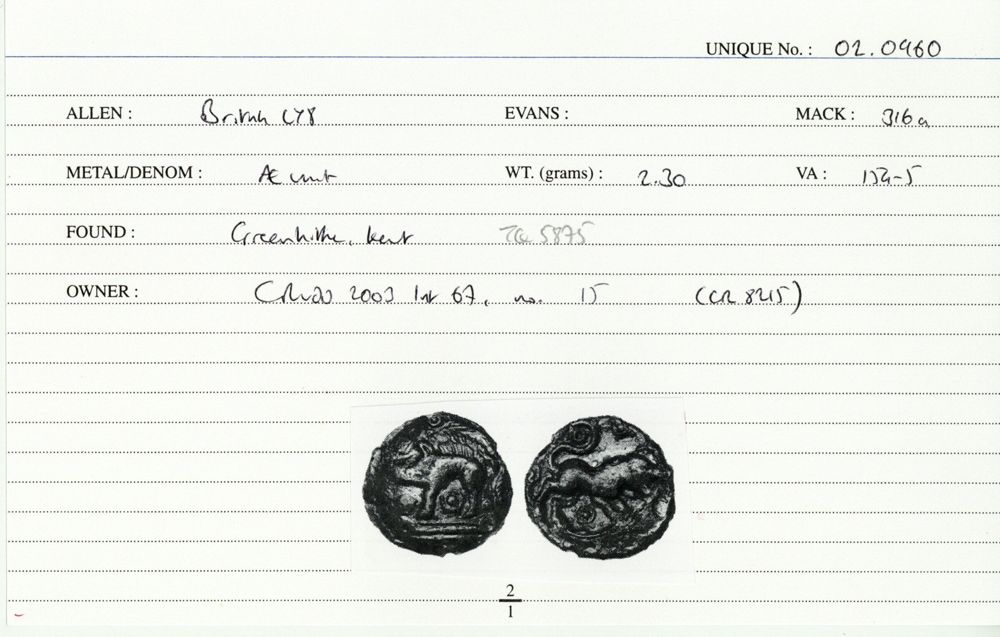 UNIQUE No. : 02.0960
ALLEN : British LY8 EVANS : MACK : 316a
METAL/DENOM : Æ unit WT. (grams) : 2.30 VA : 154-5
FOUND : Greenhithe, Kent TQ 5875
OWNER : 2003 67, no. 15 (CR 8215)
2
1